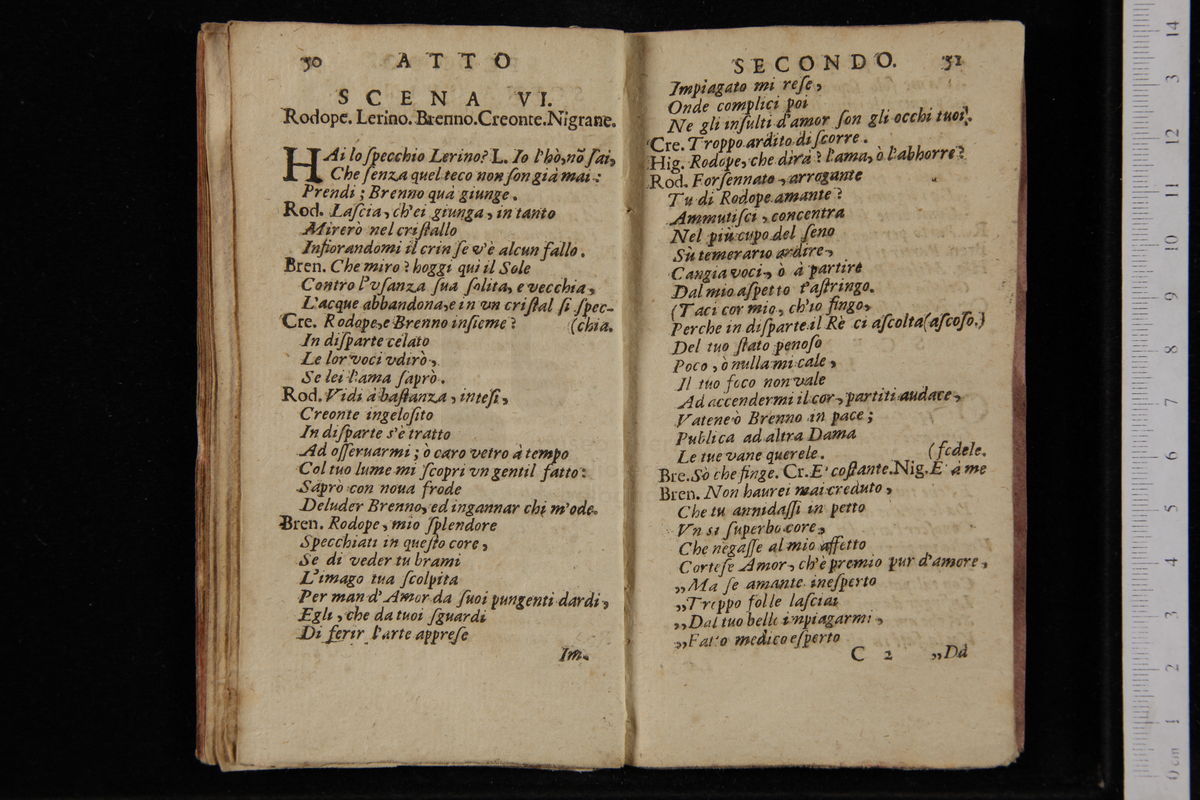 50 ATTO
SCENA VI.
Rodope. Lerino. Brenno. Creonte. Nigrane.
HAi lo ſpecchio Lerino? L. Io l'hò, nõ ſai,
Che ſenza quel teco non ſon già mai:
Prendi; Brenno quà giunge.
Rod. Laſcia, ch'ei giunga, in tanto
Mirerò nel criſtallo
Infiorandomi il crin ſe v'è alcun fallo.
Bren. Che miro? hoggi qui il Sole
Contro l'vſanza ſua ſolita, e vecchia,
L'acque abbandona, e in vn criſtal ſi ſpec-
Cre. Rodope, e Brenno inſieme? (chia.
In diſparte celato
Le lor voci vdirò,
Se lei l'ama ſaprò.
Rod. Vidi à baſtanza, inteſi,
Creonte ingeloſito
In diſparte s'è tratto
Ad oſſeruarmi; ò caro vetro à tempo
Col tuo lume mi ſcopri vn gentil fatto:
Saprò con noua frode
Deluder Brenno, ed ingannar chi m'ode.
Bren. Rodope, mio ſplendore
Specchiati in queſto core,
Se di veder tu brami
L'imago tua ſcolpita
Per man d'Amor da ſuoi pungenti dardi,
Egli, che da tuoi ſguardi
Di ferir l'arte appreſe
Im-
SECONDO. 51
Impiagato mi reſe,
Onde complici poi
Ne gli inſulti d'amor ſon gli occhi tuoi.
Cre. Troppo ardito diſcorre.
Hig. Rodope, che dirà? l'ama, ò l'abhorre?
Rod. Forſennato, arrogante
Tu di Rodope amante?
Ammutiſci, concentra
Nel più cupo del ſeno
Sù temerario ardire,
Cangia voci, ò à partire
Dal mio aſpetto t'aſtringo.
(Taci cor mio, ch'io fingo,
Perche in diſparte il Rè ci aſcolta (aſcoſo.)
Del tuo ſtato penoſo
Poco, ò nulla mi cale,
Il tuo foco non vale
Ad accendermi il cor, partiti audace,
Vatene ò Brenno in pace;
Publica ad altra Dama
Le tue vane querele. (fedele.
Bre. Sò che finge. Cr. E' coſtante. Nig. E à me
Bren. Non haurei mai creduto,
Che tu annidaſſi in petto
Vn si ſuperbo core,
Che negaſſe al mio affetto
Corteſe Amor, ch'è premio pur d'amore,
„Ma ſe amante ineſperto
„Troppo folle laſciai
„Dal tuo bello inpiagarmi,
„Fatto medico eſperto
C 2 „Dd